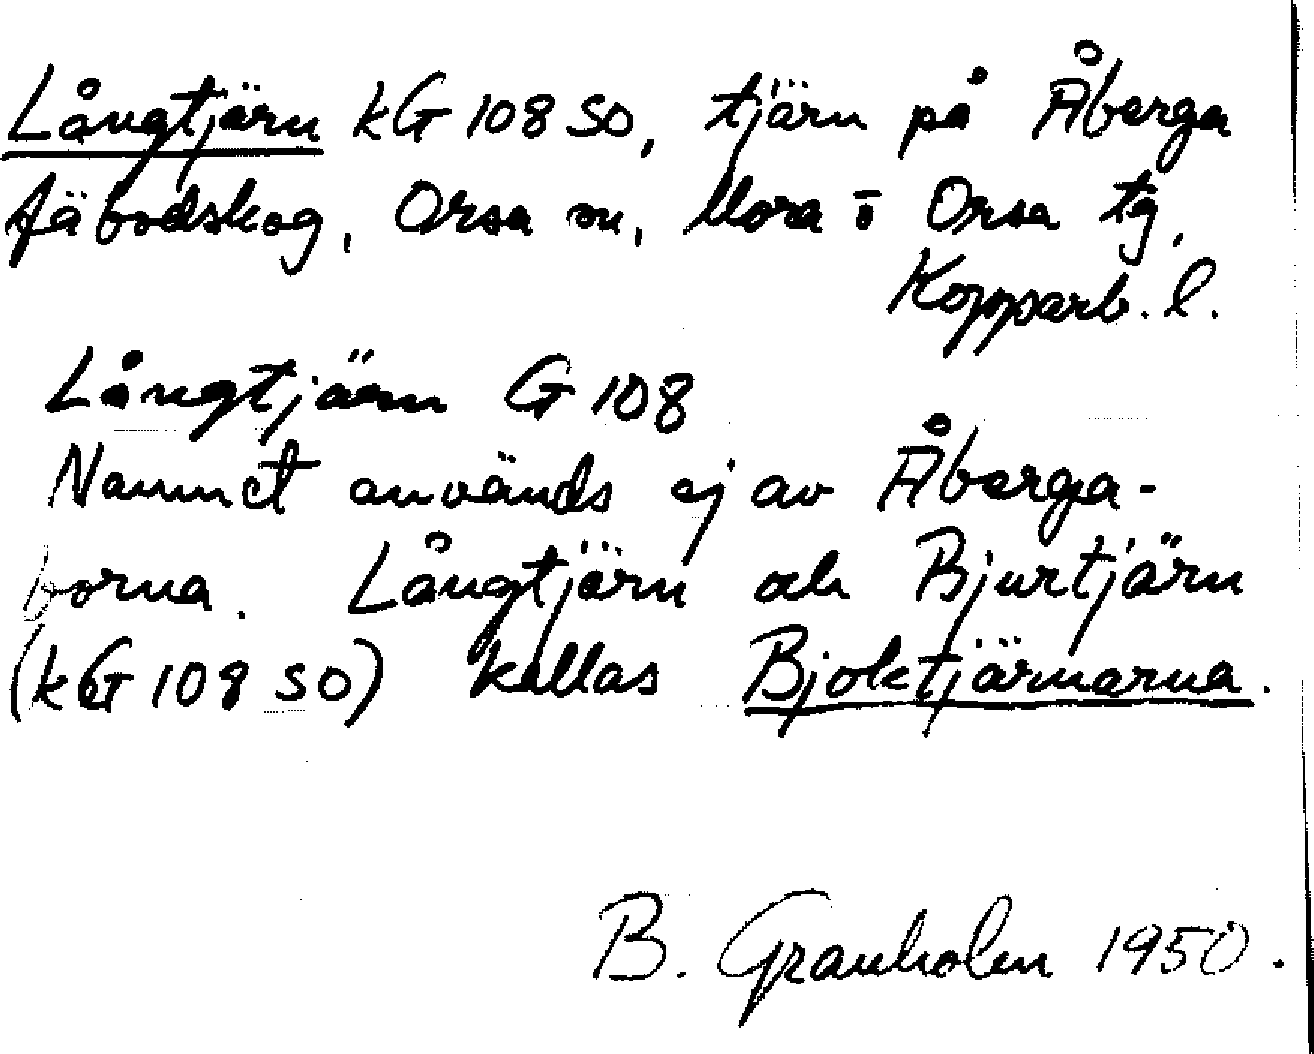 Långtjärn kG 108 SO, tjärn på Åberga
fäbodskog, Orsa sn, Mora o Orsa tg,
Kopparb. l.
Långtjärn G 108
Namnet används ej av Åberga-
borna. Långtjärn och Bjurtjärn
(kG 108 SO) kallas Bjoktjärnarna.
B. Granholm 1950.